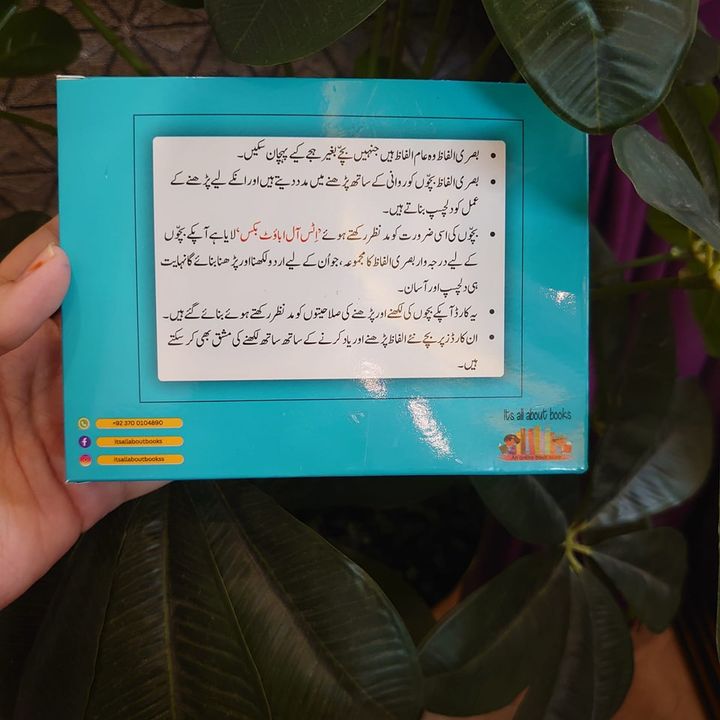 • بصری الفاظ وہ عام الفاظ ہیں جنہیں بچّے بغیر ہجے کیے پہچان سکیں۔
• بصری الفاظ بچّوں کو روانی کے ساتھ پڑھنے میں مدد دیتے ہیں اور انکے لیے پڑھنے کے
عمل کو دلچسپ بناتے ہیں۔
• بچّوں کی اسی ضرورت کو مد نظر رکھتے ہوئے ’اِٹس آل اباؤٹ بکس‘ لایا ہے آپکے بچّوں
کے لیے درجہ وار بصری الفاظ کا مجموعہ، جو اُن کے لیے اردو لکھنا اور پڑھنا بنائے گا نہایت
ہی دلچسپ اور آسان۔
• یہ کارڈ آپکے بچوں کی لکھنے اور پڑھنے کی صلاحیتوں کو مد نظر رکھتے ہوئے بنائے گئے ہیں۔
• ان کارڈز پر بچے نئے الفاظ پڑھنے اور یاد کرنے کے ساتھ ساتھ لکھنے کی مشق بھی کر سکتے
ہیں۔
+92 370 0104890
itsallaboutbooks
itsallaboutbookss
Its all about books
An online book store